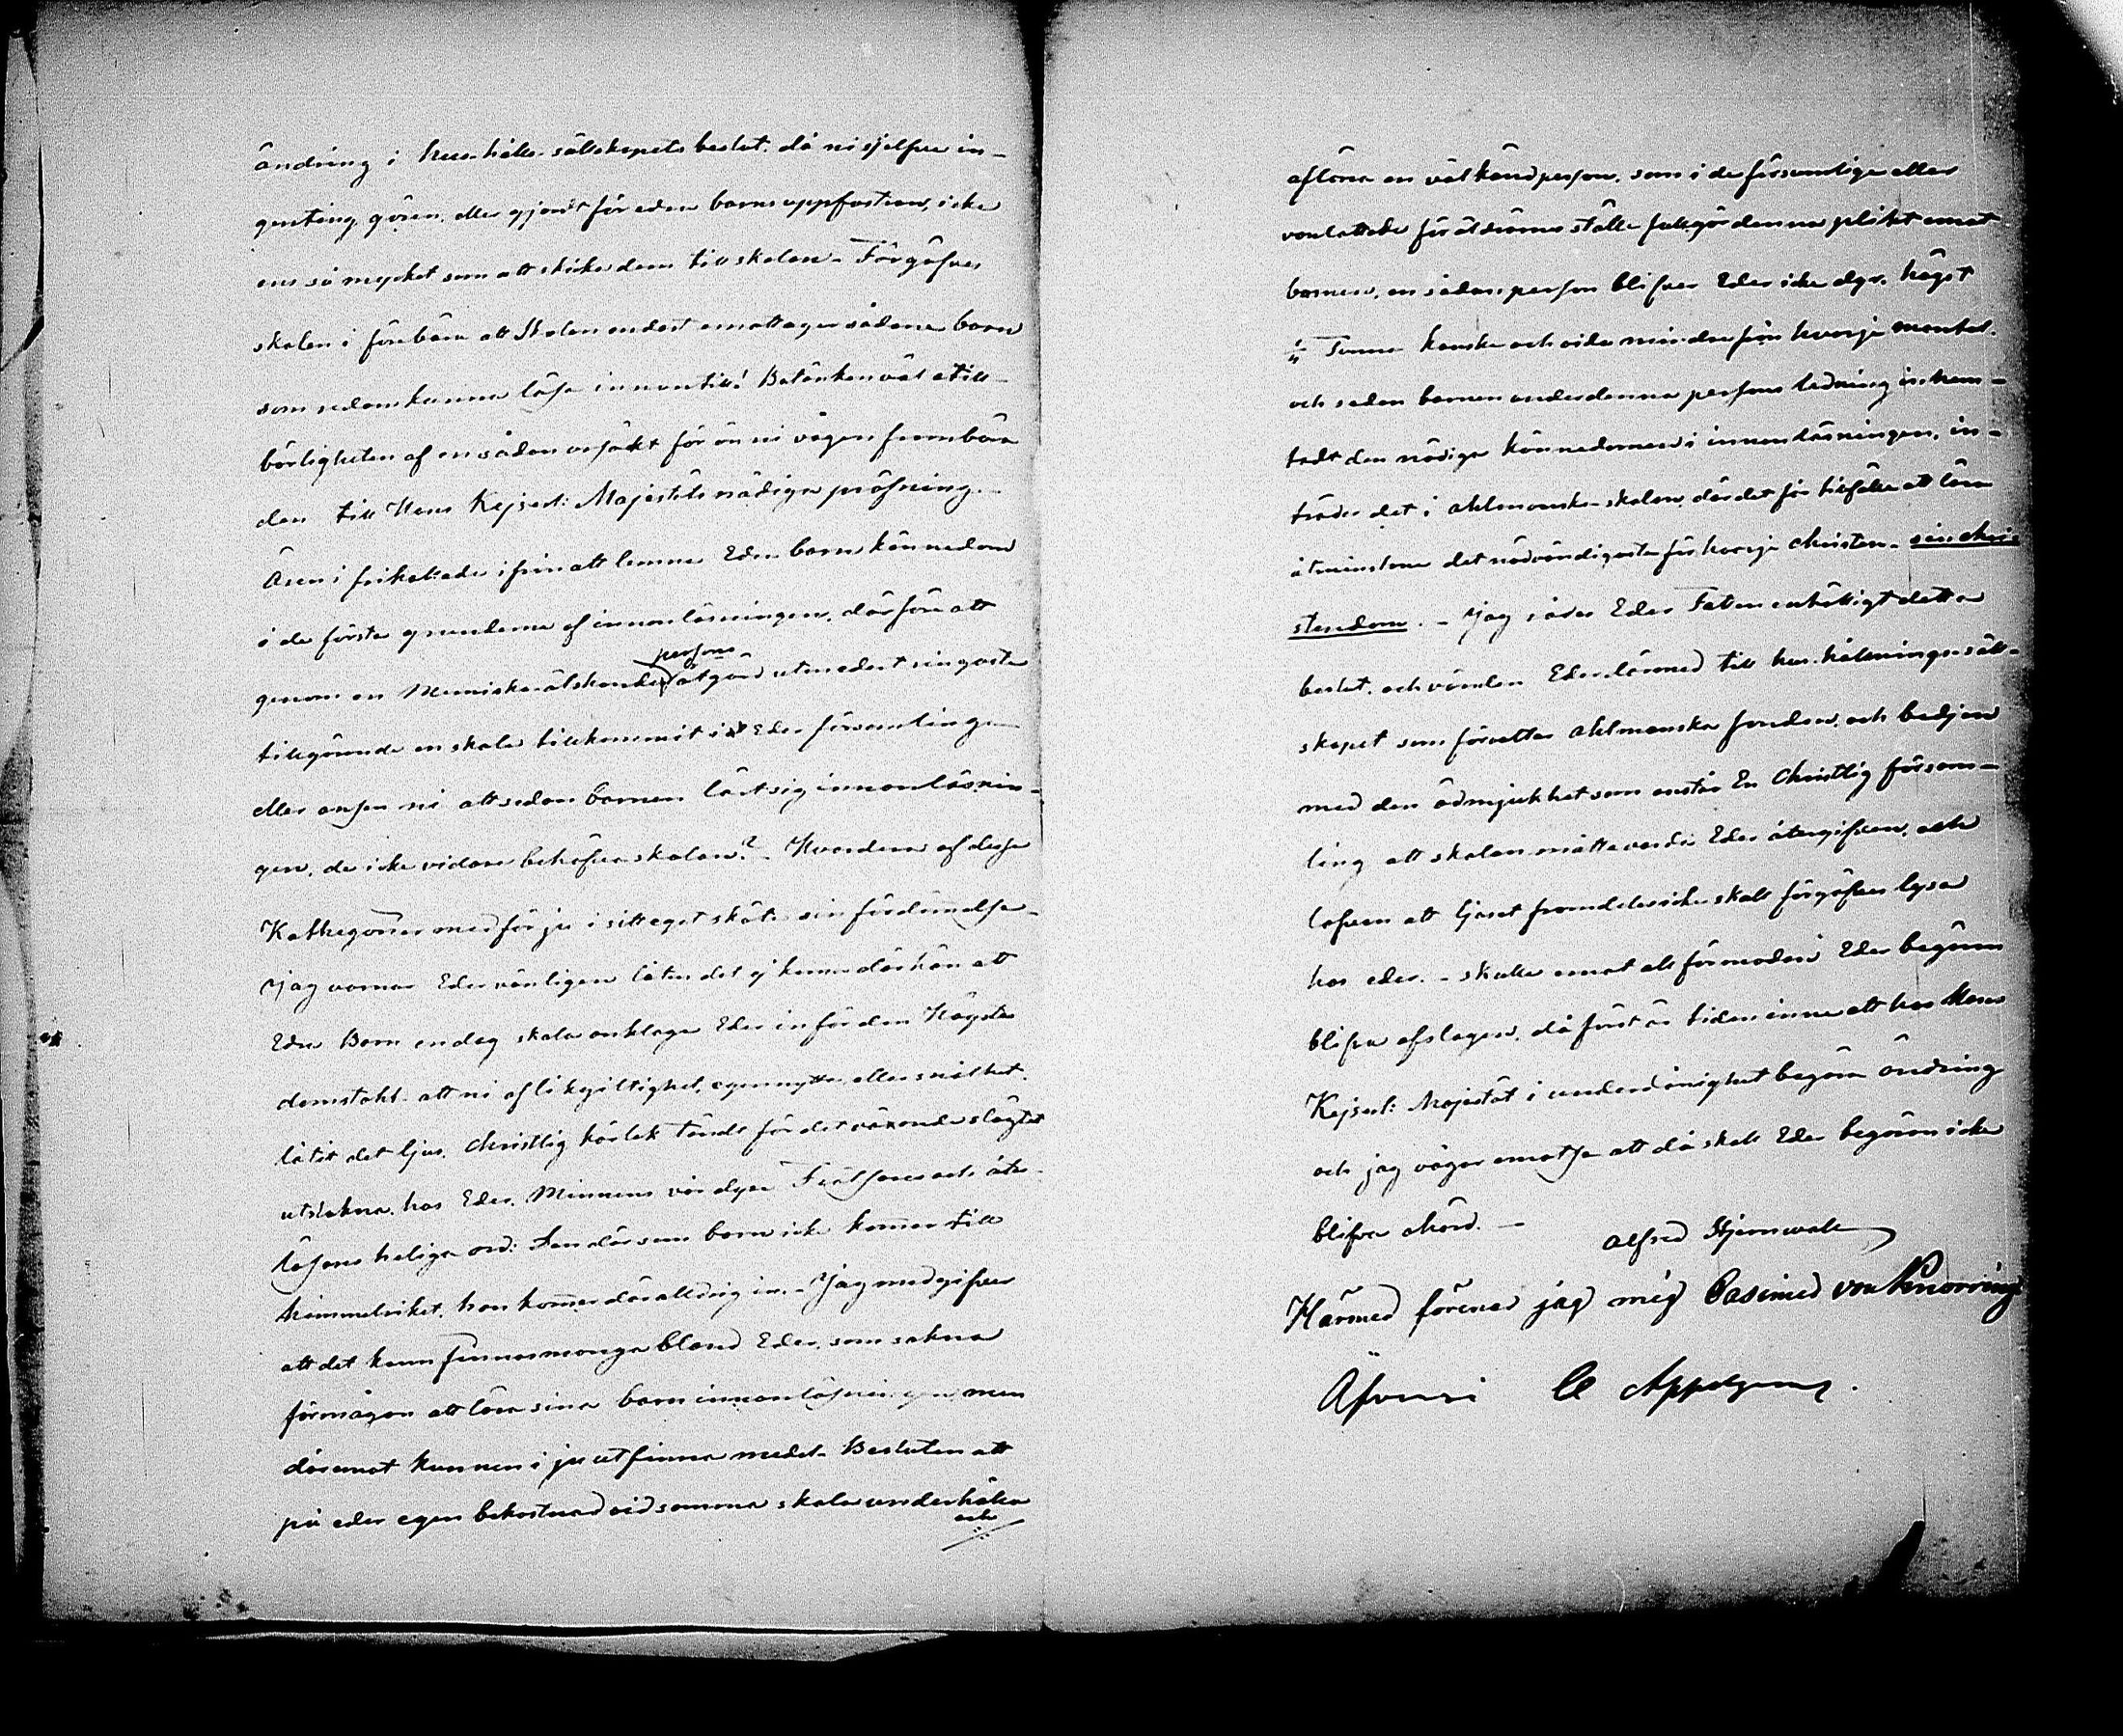 ändring i hus-hålls-sällskapets beslut, då ni sjelfva in-
genting gören, eller gjordt för edra barns uppfostran, icke
ens så mycket som att skicka dem till skolan. – Förgäfves
skolen i förebära att Skolan endast emottager sådana barn
som redan kunna läsa innantill! Betänken väl otill-
börligheten af en sådan orsäkt för än ni vågen frambära
den till Hans Kejserl: Majestäts nådiga pröfning. –
Ären i frikallade ifrån att lemna Edra barn kännedom
i de första grunderna af innanläsningen, därföre att
genom en Menniskoälskande persons åtgärd utmedert ringaste
tillgörande en skola tillkommit i Eder församling –
eller ansen ni att sedan barnen lärt sig innanläsnin-
gen, de icke vidare behöfva skolan? – Hvardera af dessa
Kathegorier medför ju i sitt eget sköte sin fördömelse –
Jag varnar Eder vänligen låten det ej komma därhän att
Edra Barn en dag skola anklaga Eder inför den Högstes
domstohl – att ni af likgiltighet, egennytta eller snålhet
låtit det ljus, Christlig kärlek tändt för det växande slägtet
utslokna hos Eder. Minnens vår dyra Frälsares och åter-
lösares heliga ord: Den där som barn icke kommer till
himmelriket, han kommer där alldrig in. – Jag medgifver
att det kann finnas monga bland Eder, som sakna
förmågan att lära sina barn innanläsningen, men
däremot kunnen i ju utfinna medel – Besluten att
på eder egen bekostnad vid samma skola underhålla
och
aflöna en väl känd person, som i de försumliga eller
vanlottade föräldrarnes ställe fullgör denna plikt emot
barnen, en sådan person blifver Eder icke dyr, högst
Tunna kanske och vida mindre från hvarje mantal.
och sedan barnen under denna persons ledning inhem-
tadt den nödiga kännedomen i innanläsningen, in-
träder det i ahlmanska-skolan, där det får tillfälle att lära
åtminstone det nödvändigaste för hvarje Christen – sin chri-
stendom. – Jag råder Eder Fatten enhälligt detta
beslut, och vänden Eder därmed till hus-hållnings-säll-
skapet som förvaltar ahlmanska fonden, och bedjen
med den ödmjukhet som anstår En Christlig försam-
ling att skolan måtte varda Eder återgifven, och
lofven att ljuset framdeles icke skall förgäfves lysa
hos eder. – skulle emot all förmodan Eder begäran
blifva afslagen, då först är tiden inne att hos Hans
Kejserl: Majestät i underdånighet begära ändring
och jag vågar emotse att då skall Eder begäran icke
blifva ohörd. –
Alfred Stjernvall
Härmed förenar jag mig Casimir von Knorring
Äfveni C Appelgren.